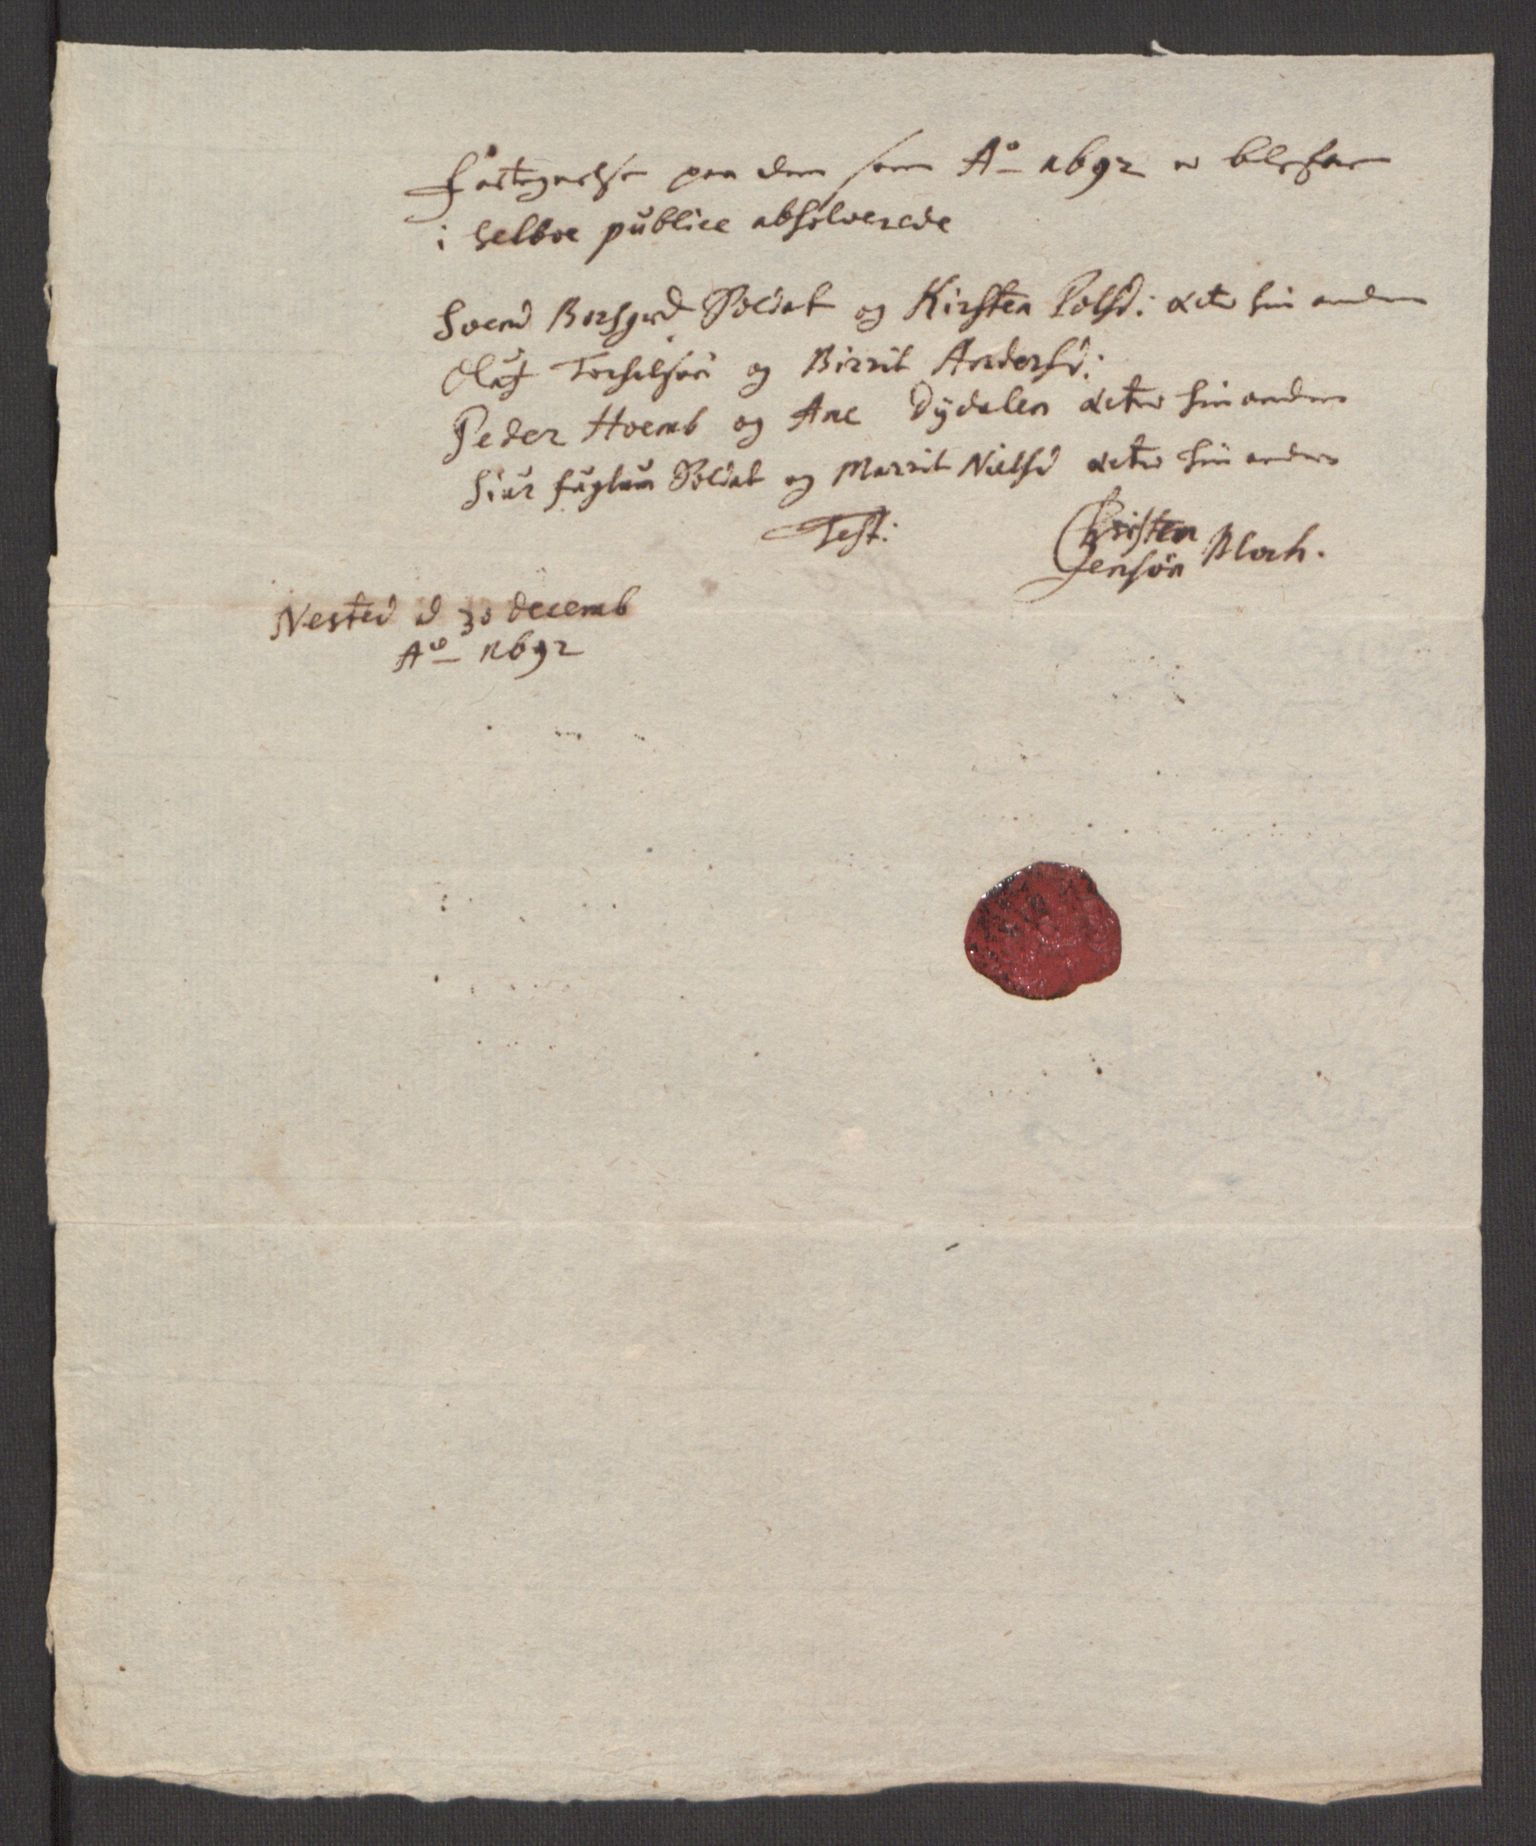 Fortegnelse paa dem som Aº 1692 er blefne
i Selboe publice absolverede
Svend Bersgrd Soldat og Kirsten Polsd: hin anden
Oluf Torchelsøn og Birrit Andersd:
Peder Hoemb og Ane Dydalen hin anden
Siur fuglum Soldat og Marrit Nielsd hin anden
Test: Christen
Jensøn Bloch.
Nested d 30 decemb
Aº 1692